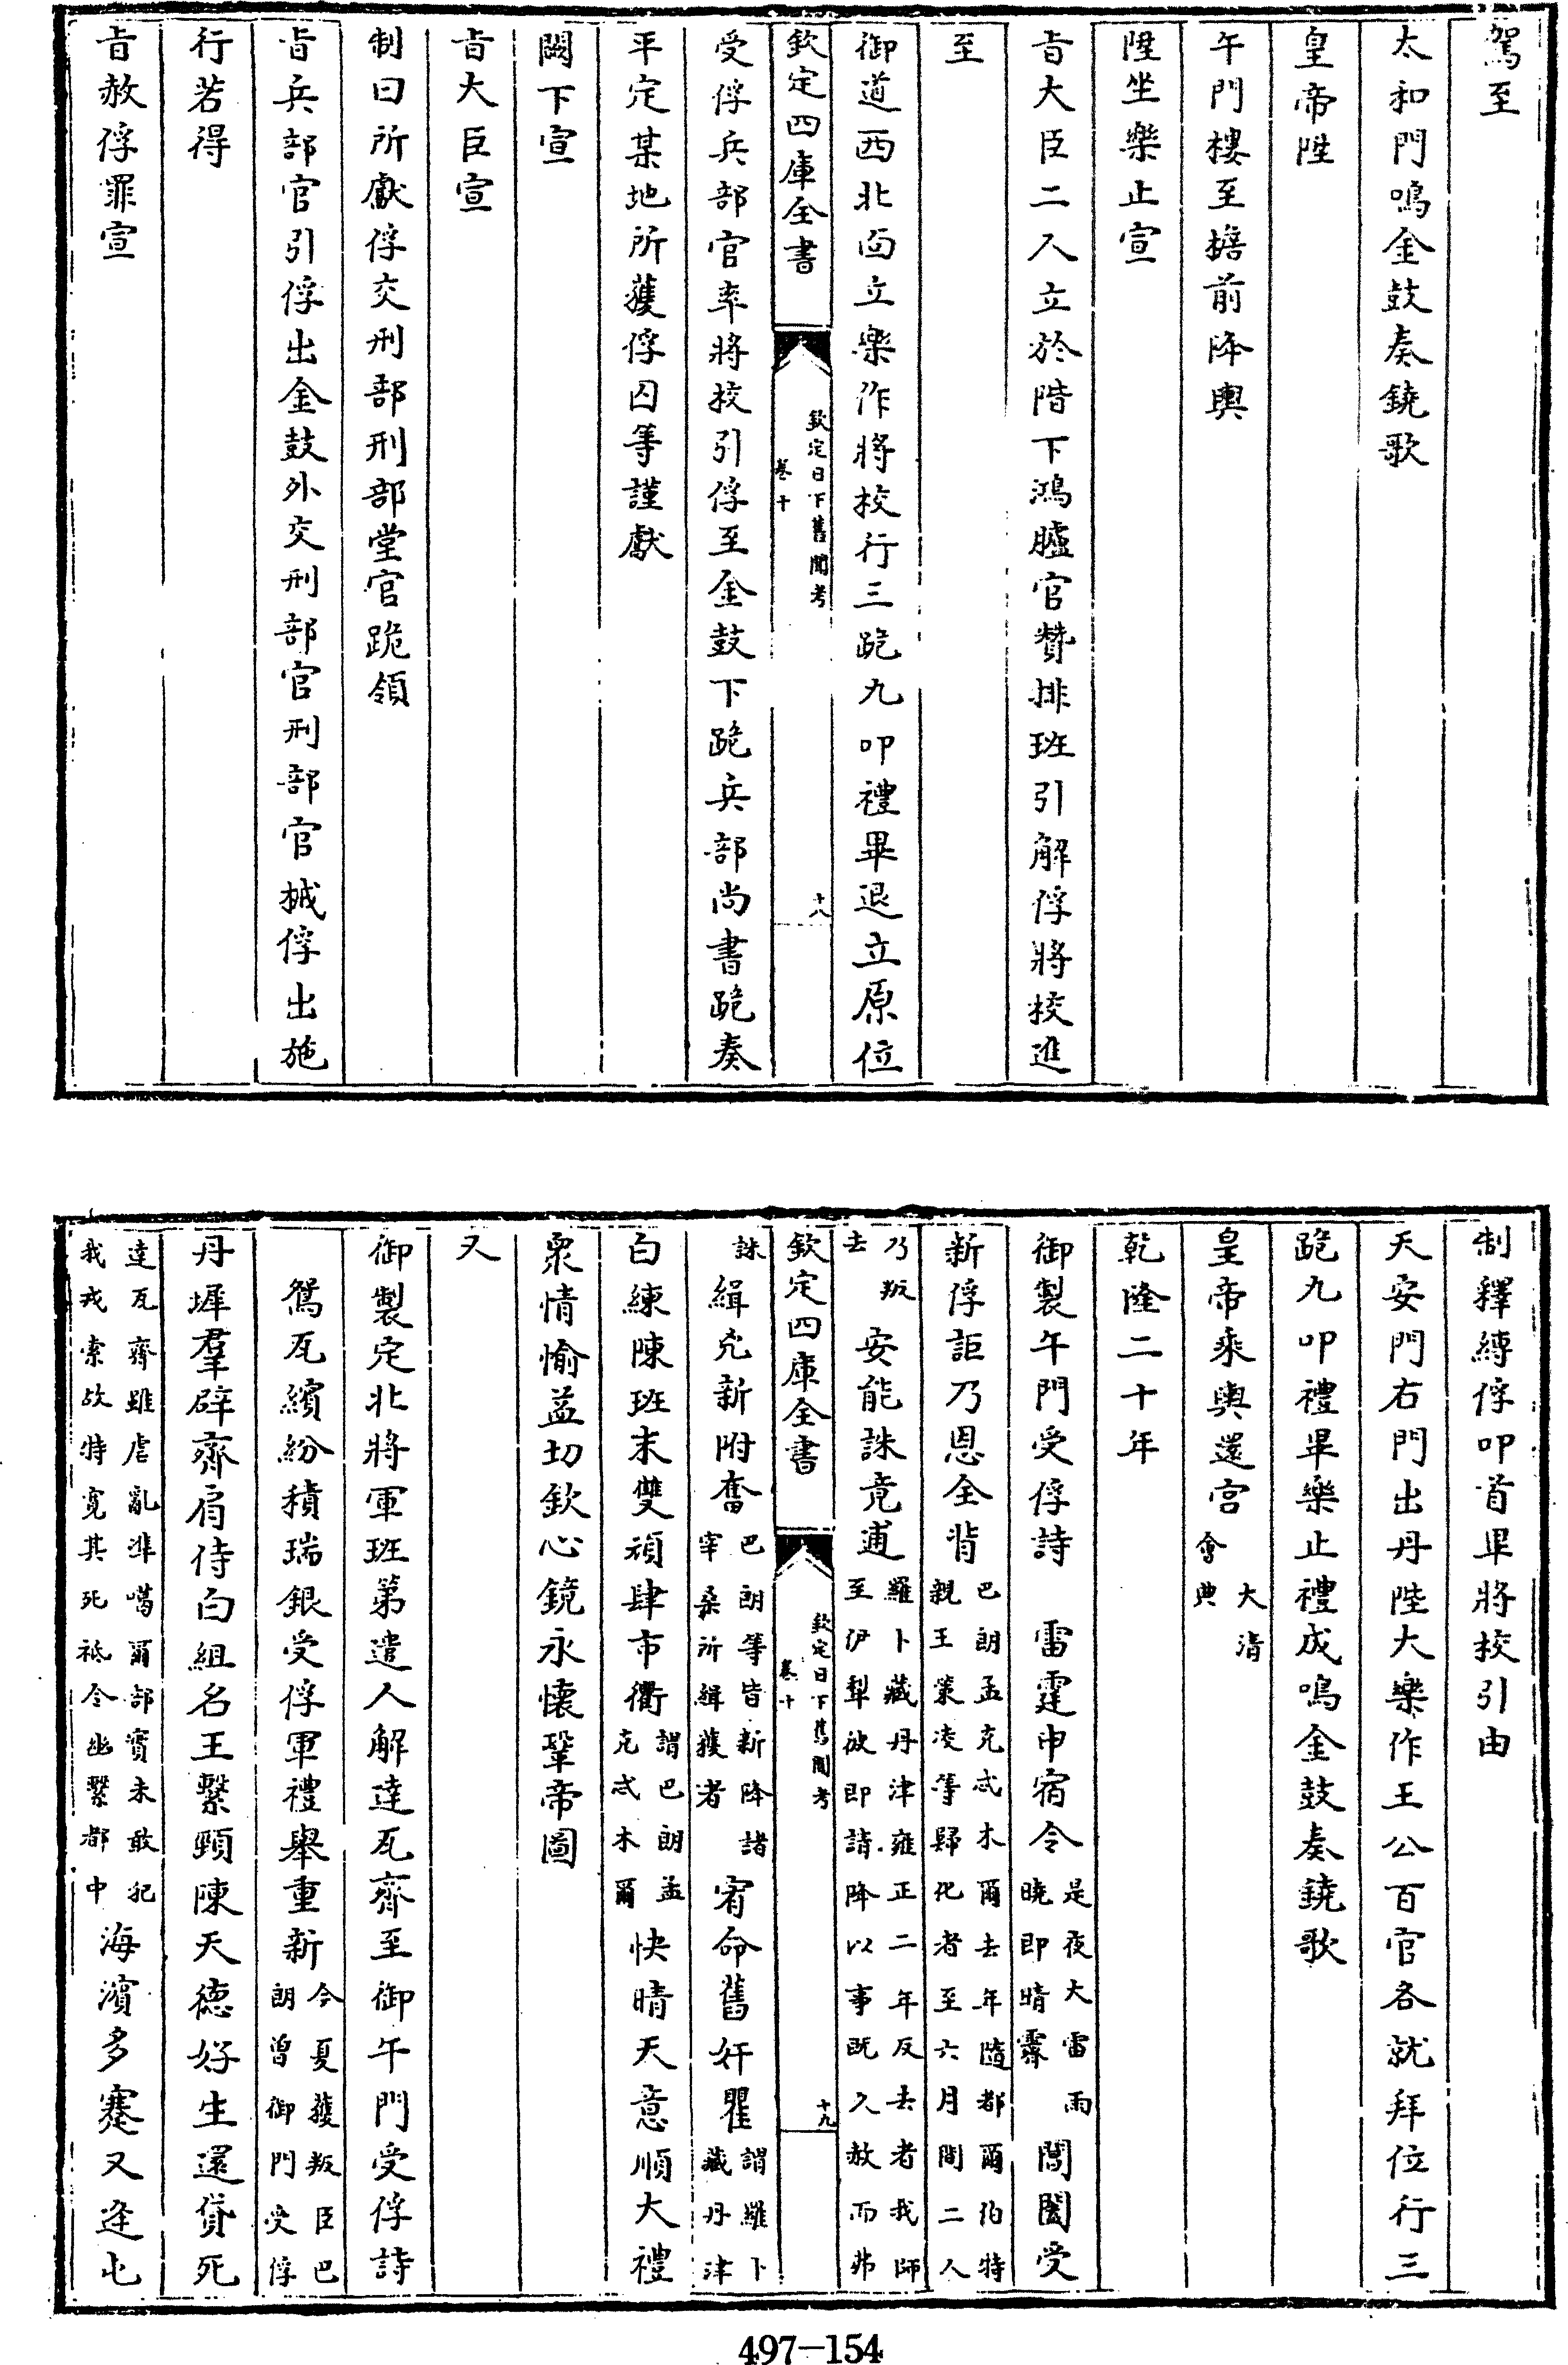 駕至
太和門鳴金鼓奏鐃歌
皇帝陞
午門樓至檐前降輿
陞坐樂止宣
㫖大臣二人立於階下鴻臚官贊排班引解俘將校進
至
御道西北面立樂作將校行三跪九叩禮畢退立原位
欽定四庫全書
欽定日下舊聞考
卷十
十八
受俘兵部官率將校引俘至金鼓下跪兵部尚書跪奏
平定某地所獲俘囚等謹獻
闕下宣
㫖大臣宣
制曰所獻俘交刑部刑部堂官跪領
㫖兵部官引俘出金鼓外交刑部官刑部官械俘出施
行若得
㫖赦俘罪宣
制釋縛俘叩首畢將校引由
天安門右門出丹陛大樂作王公百官各就拜位行三
跪九叩禮畢樂止禮成鳴金鼓奏鐃歌
皇帝乘輿還宫大清會典
乾隆二十年
御製午門受俘詩　雷霆申宿令是夜大雷雨曉即晴霽閶闔受
新俘詎乃恩全背巴朗孟克忒木爾去年隨都爾伯特親王策凌等歸化者至六月間二人
乃叛去安能誅竟逋羅卜藏丹津雍正二年反去者我師至伊犁彼即請降以事既久赦而弗
欽定四庫全書
欽定日下舊聞考
卷十
十九
誅緝兇新附奮巴朗等皆新降諸宰桑所緝獲者宥命舊奸瞿謂羅卜藏丹津
白練陳班末雙頑肆市衢謂巴朗孟克忒木爾快晴天意順大禮
衆情愉益切欽心鏡永懷鞏帝圖
又
御製定北將軍班第遣人解達瓦齊至御午門受俘詩
鴛瓦繽紛積瑞銀受俘軍禮舉重新今夏獲叛臣巴朗曾御門受俘
丹墀羣辟齊肩侍白組名王繫頸陳天德好生還貸死
達瓦齊雖虐亂準噶爾部實未敢犯我戎索故特寛其死祗令幽繫都中海濱多蹇又逢屯
497-154